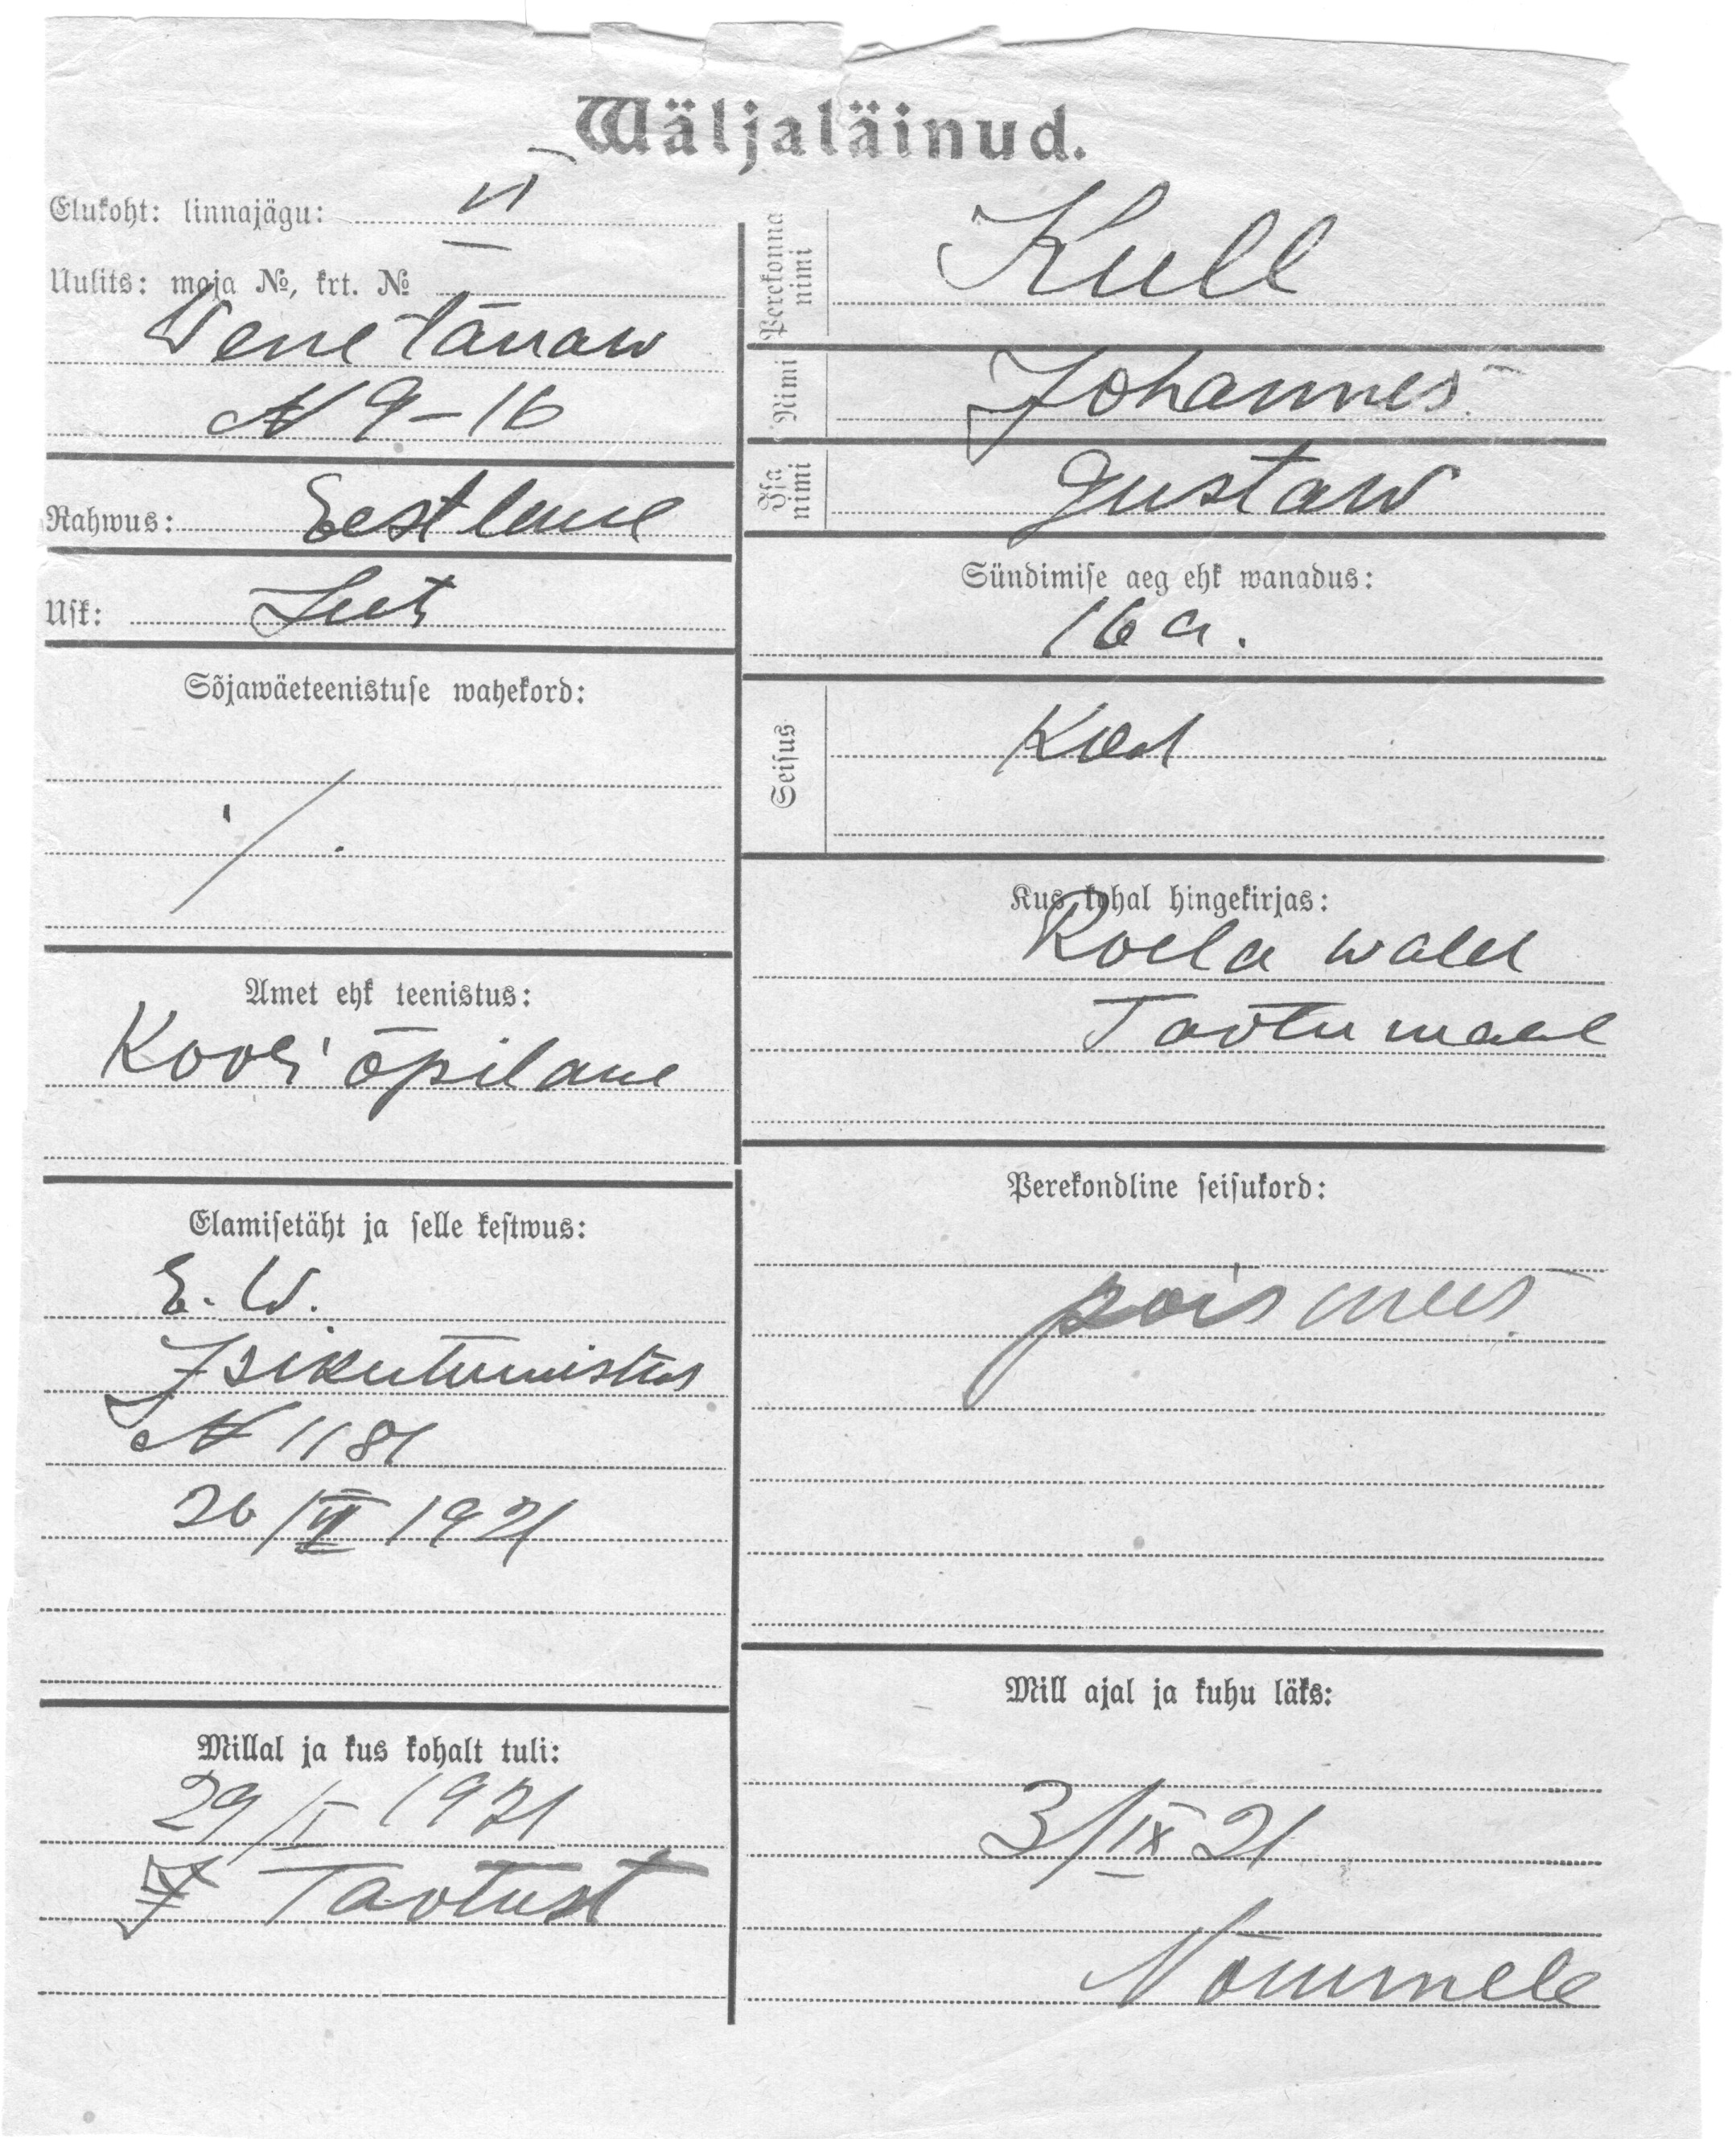 Wäljaläinud.
Elukoht: linnajägu: VI
Uulits: maja №, krt. №
Wene tänaw
N 9-16
Rahwus: Eestlane
Usk: Lut
Sõjawäeteenistuse wahekord:
Amet ehk teenistus:
Kooli õpilane
Elamisetäht ja selle kestwus:
E. W.
Isikutunnistus
N 1181
26/VI 1921
Millal ja kus kohalt tuli:
29/ 1921
Tartust
Perekonna nimi
Kull
Nimi
Johannes
Isa nimi
Gustaw
Sündimise aeg ehk wanadus:
16 a.
Seisus
Kod
Kus kohal hingekirjas:
Roela wald
Tartumaal
Perekondline seisukord:
poismees
Mill ajal ja kuhu läks:
3/IX 21
Nõmmele